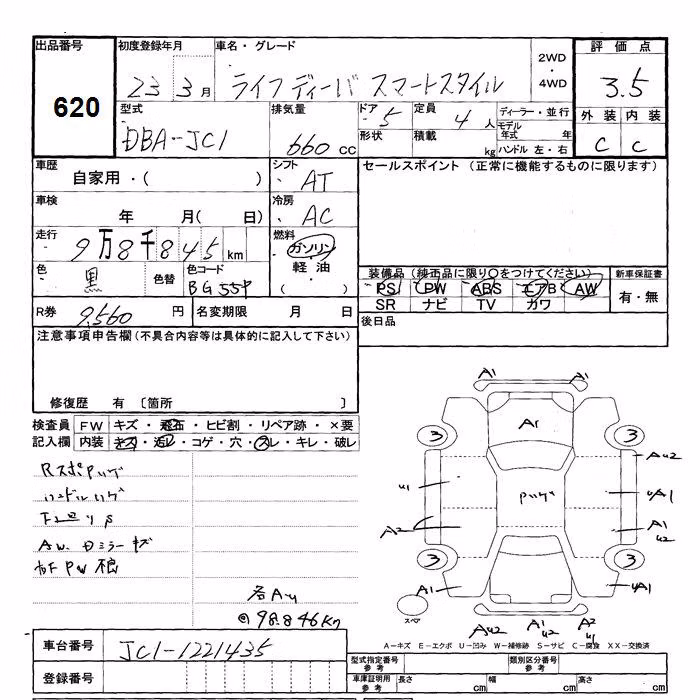 出品番号
620
初度登録年月
23 3月
車名・グレード
ライフディーバ スマートスタイル
2WD
・
4WD
評価点
3.5
型式
DBA-JC1
排気量
660 cc
ドア 5
定員 4人
ディーラー・並行
形状
積載 kg
モデル年式 年
ハンドル 左・右
外装 内装
C C
車歴
自家用・( )
シフト
AT
セールスポイント (正常に機能するものに限ります)
車検
年 月( 日)
冷房
AC
走行
9万8千845km
燃料
ガソリン
・
軽油
( )
色
黒
色替
色コード
BG55P
装備品(純正品に限り○をつけてください)
PS PW ABS エアB AW
SR ナビ TV カワ
新車保証書
有・無
R券 9,560 円
名変期限 月 日
後日品
注意事項申告欄(不具合内容等は具体的に記入して下さい)
修復歴 有 〔箇所 〕
検査員 FW キズ・飛石・ヒビ割・リペア跡・×要
記入欄 内装 キズ・汚レ・コゲ・穴・スレ・キレ・破レ
AW. ドミラーキズ
各AU
@98.846Km
A1 A1
A1
3 3
AU2
U1 UA1
A2 A1
U2
3 3
A1 UA1
スペア
AU2 A1 A2
U2 U1
A-キズ E-エクボ U-凹み W-補修跡 S-サビ C-腐食 XX-交換済
車台番号
JC1-1221435
登録番号
型式指定番号
参考
類別区分番号
参考
車庫証明用
参考
長さ cm
幅 cm
高さ cm